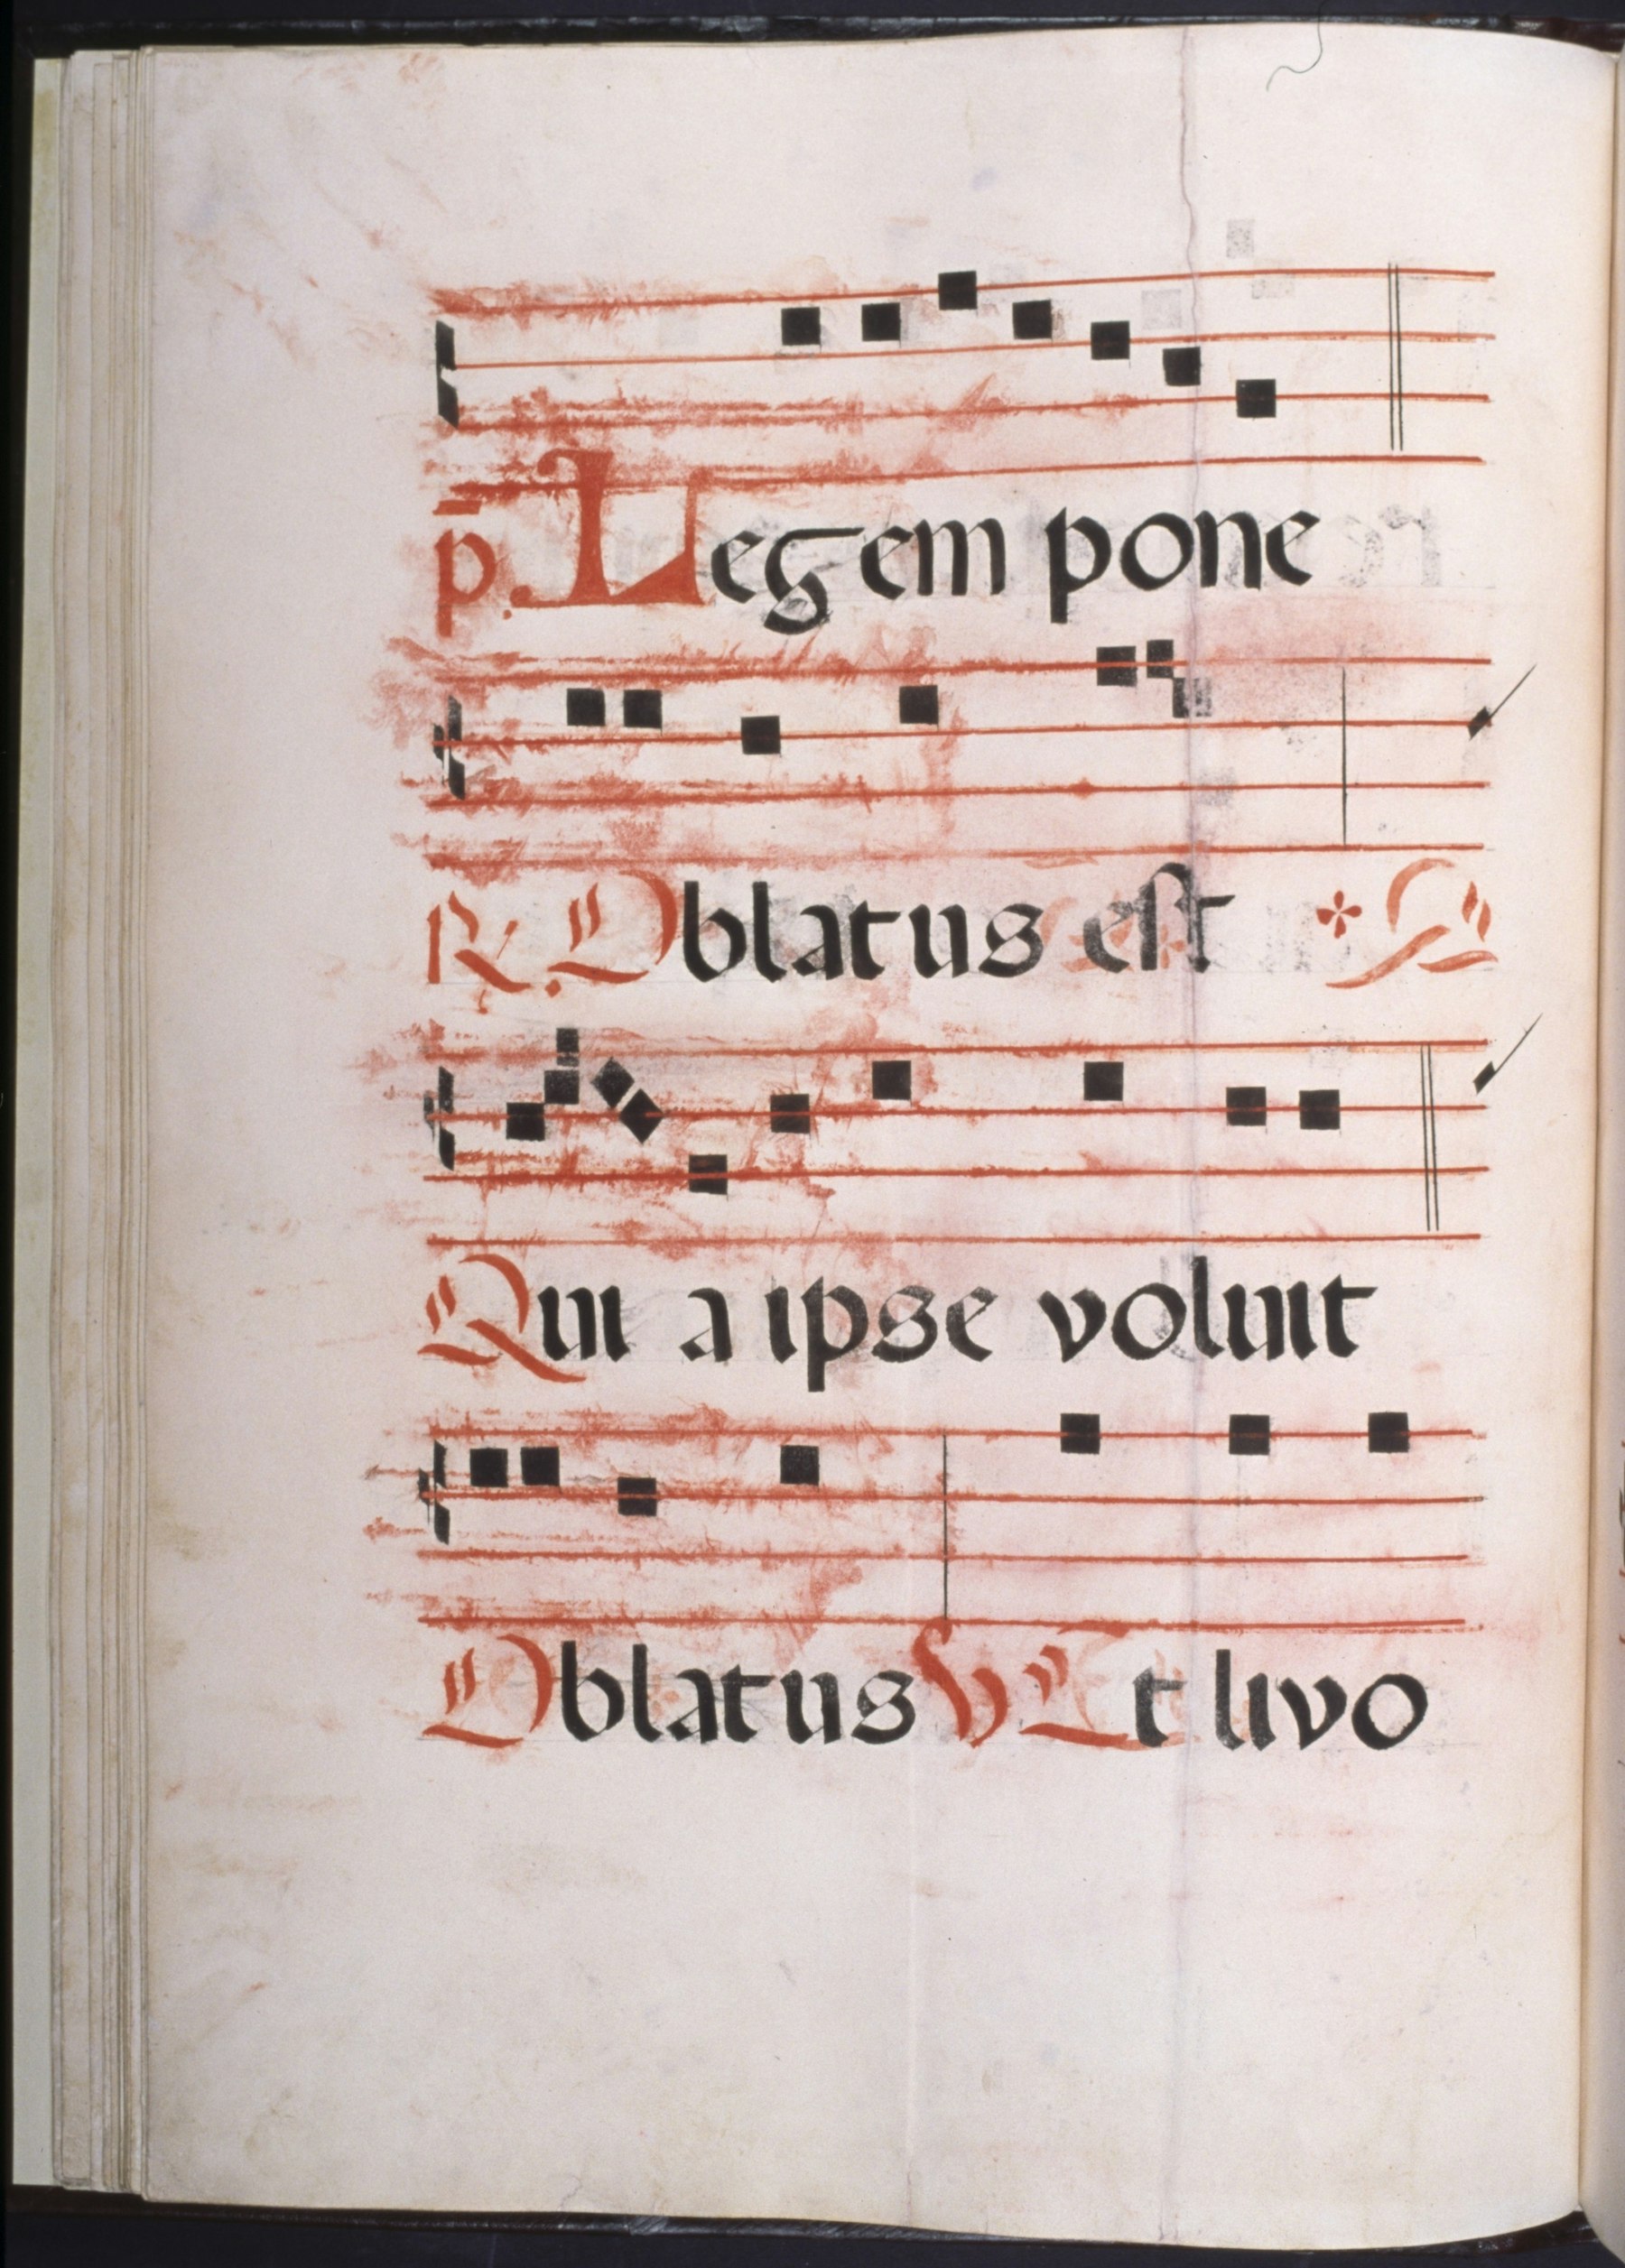 p̄. Legem pone
R. Oblatus est Q
Qui a ipse voluit
Oblatus V Et livo